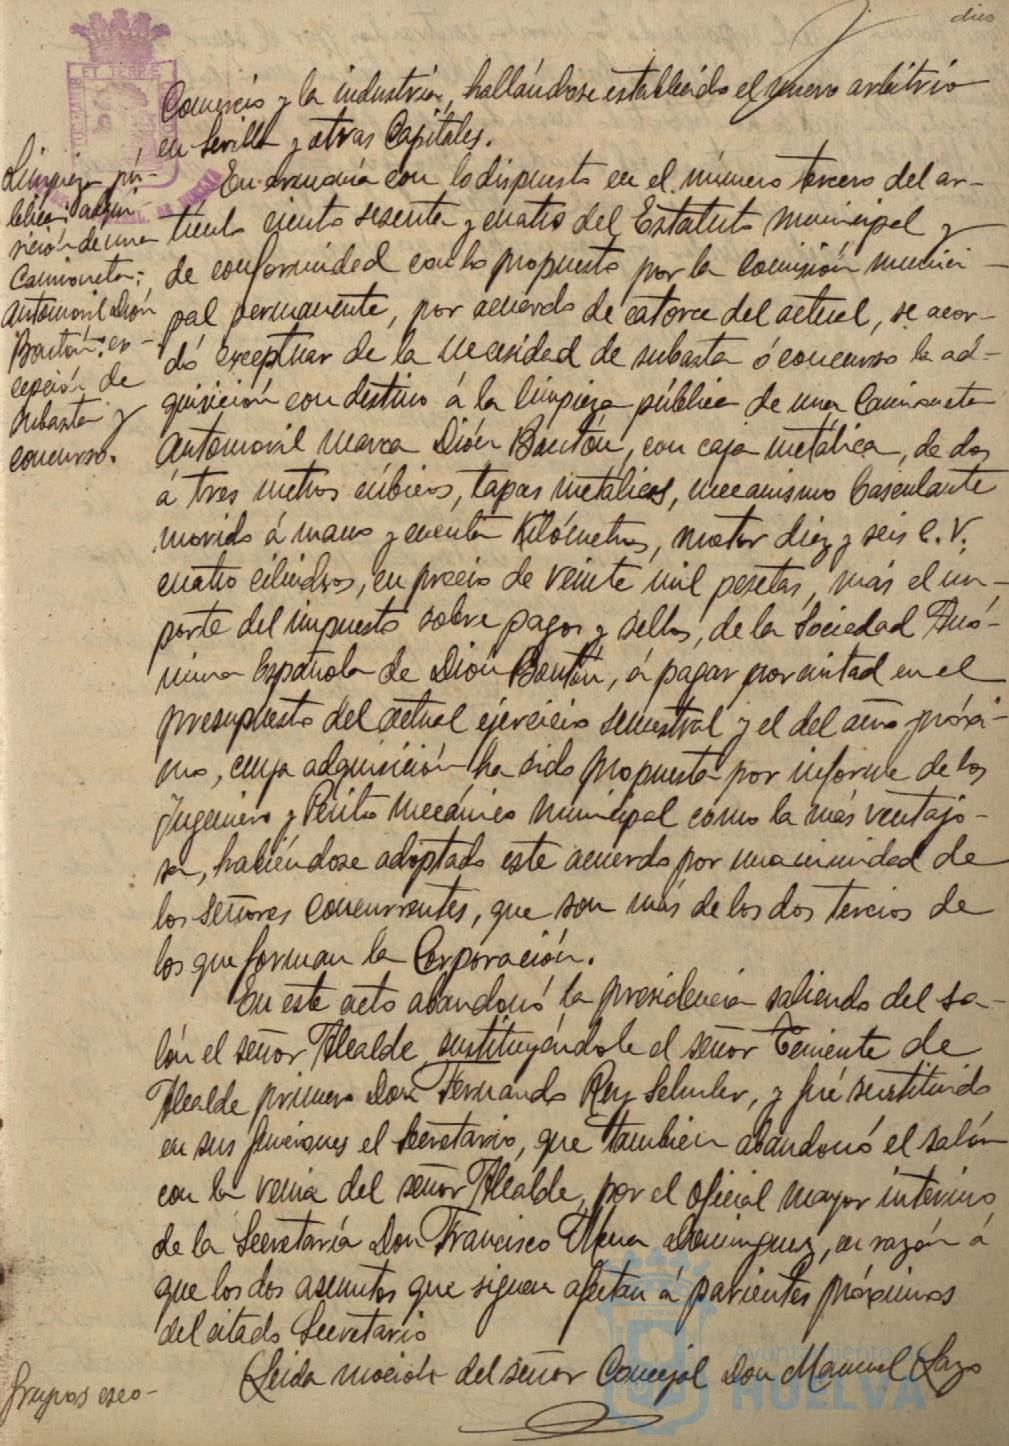 dies
Comercio y la industria, hallándose establecido el nuevo arbitrio
en Sevilla y otras Capitales.
Limpieza pú-
blica: adqui-
sición de una
Camioneta-
automovil Dión
Boutón: ex-
cepción de
subasta y
concurso.
En armonía con lo dispuesto en el número tercero del ar-
tículo ciento sesenta y cuatro del Estatuto municipal y
de conformidad con lo propuesto por la Comisión munici-
pal permanente, por acuerdo de catorce del actual, se acor-
dó exceptuar de la necesidad de subasta ó concurso la ad-
quisición con destino á la limpieza pública de una Camioneta
Automovil marca Dión Boutón, con caja metálica, de dos
á tres metros cúbicos, tapas metálicas, mecanismo basculante
movido á mano y cuenta Kilómetros, motor diez y seis C.V.
cuatro cilindros, en precio de veinte mil pesetas, más el im-
porte del impuesto sobre pagos y sellos, de la Sociedad Anó-
nima Española de Dión Boutón, á pagar por mitad en el
presupuesto del actual ejercicio semestral y el del año próxi-
mo, cuya adquisición ha sido propuesta por informe de los
Ingeniero y Perito mecánico municipal como la más ventajo-
sa, habiéndose adoptado este acuerdo por unanimidad de
los Señores Concurrentes, que son más de los dos tercios de
los que forman la Corporación.
En este acto abandonó la presidencia saliendo del sa-
lón el señor Alcalde sustituyéndole el señor Teniente de
Alcalde primero Don Fernando Rey, y fué sustituido
en sus funciones el Secretario, que también abandonó el salón
con la venia del señor Alcalde, por el oficial mayor interino
de la Secretaría Don Francisco Mora Dominguez, en razón á
que los dos asuntos que siguen afectan á parientes próximos
del citado Secretario
Grupos esco-
Leida moción del señor Concejal Don Manuel Lazo
ET TERRÆ
Ayuntamiento de
HUELVA